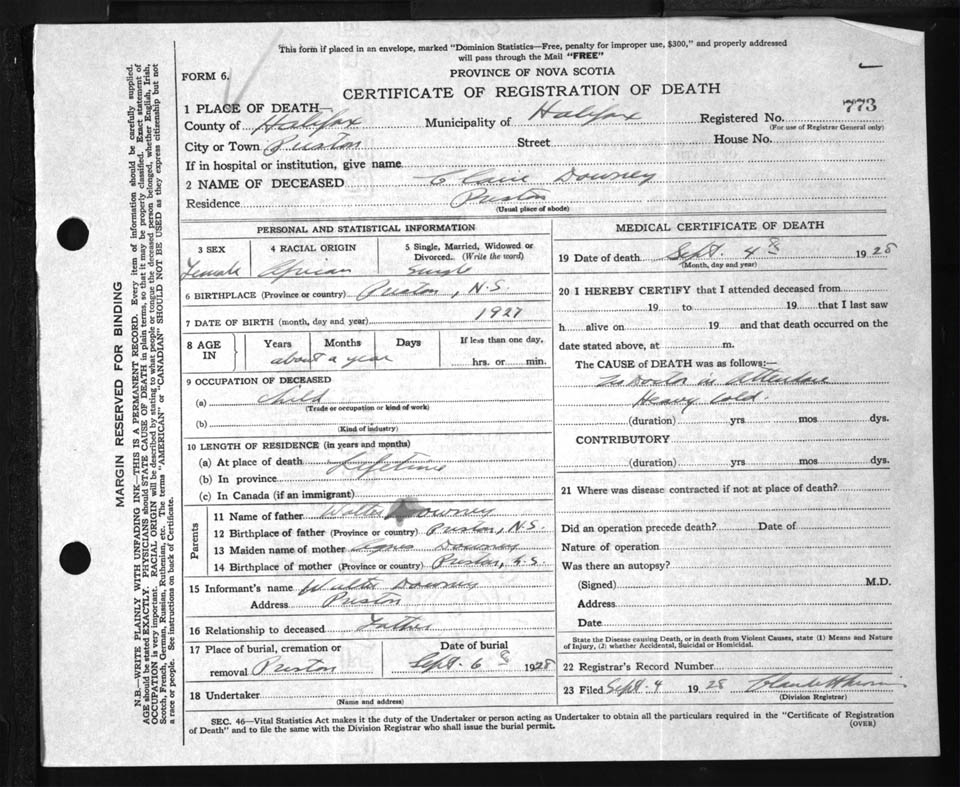 This form if placed in an envelope, marked "Dominion Statistics—Free, penalty for improper use, $300," and properly addressed
will pass through the Mail "FREE"
FORM 6.
PROVINCE OF NOVA SCOTIA
CERTIFICATE OF REGISTRATION OF DEATH
773
1 PLACE OF DEATH—
County of Halifax Municipality of Halifax Registered No.
(For use of Registrar General only)
City or Town Preston Street House No.
If in hospital or institution, give name
2 NAME OF DECEASED Claire Downey
Residence Preston
(Usual place of abode)
PERSONAL AND STATISTICAL INFORMATION
3 SEX 4 RACIAL ORIGIN 5 Single, Married, Widowed or
Divorced. (Write the word)
Female African Single
6 BIRTHPLACE (Province or country) Preston, N.S.
7 DATE OF BIRTH (month, day and year) 1927
8 AGE IN Years Months Days If less than one day,
about a year hrs. or min.
9 OCCUPATION OF DECEASED
(a) Child
(Trade or occupation or kind of work)
(b)
(Kind of industry)
10 LENGTH OF RESIDENCE (in years and months)
(a) At place of death Lifetime
(b) In province
(c) In Canada (if an immigrant)
Parents
11 Name of father Walter Downey
12 Birthplace of father (Province or country) Preston, N.S.
13 Maiden name of mother Agnes Downey
14 Birthplace of mother (Province or country) Preston, N.S.
15 Informant's name Walter Downey
Address Preston
16 Relationship to deceased Father
17 Place of burial, cremation or Date of burial
removal Preston Sept. 6 1928
18 Undertaker
(Name and address)
MEDICAL CERTIFICATE OF DEATH
19 Date of death Sept. 4 1928
(Month, day and year)
20 I HEREBY CERTIFY that I attended deceased from
19 to 19 that I last saw
h alive on 19 and that death occurred on the
date stated above, at m.
The CAUSE of DEATH was as follows:—
No Doctor in Attendance
Heavy Cold.
(duration) yrs mos dys.
CONTRIBUTORY
(duration) yrs mos dys.
21 Where was disease contracted if not at place of death?
Did an operation precede death? Date of
Nature of operation
Was there an autopsy?
(Signed) M.D.
Address
Date
State the Disease causing Death, or in death from Violent Causes, state (1) Means and Nature
of Injury, (2) whether Accidental, Suicidal or Homicidal.
22 Registrar's Record Number
23 Filed Sept. 4 1928
(Division Registrar)
SEC. 46—Vital Statistics Act makes it the duty of the Undertaker or person acting as Undertaker to obtain all the particulars required in the "Certificate of Registration
of Death" and to file the same with the Division Registrar who shall issue the burial permit.
(OVER)
MARGIN RESERVED FOR BINDING
N.B.—WRITE PLAINLY WITH UNFADING INK—THIS IS A PERMANENT RECORD. Every item of information should be carefully supplied.
AGE should be stated EXACTLY. PHYSICIANS should STATE CAUSE OF DEATH in plain terms, so that it may be properly classified. Exact statement of
OCCUPATION is very important. RACIAL ORIGIN will be described by stating to what people or tongue the deceased person belonged, whether English, Irish,
Scotch, French, German, Russian, Ruthenian, etc. The terms "AMERICAN" or "CANADIAN" SHOULD NOT BE USED as they express citizenship but not
a race or people. See instructions on back of Certificate.